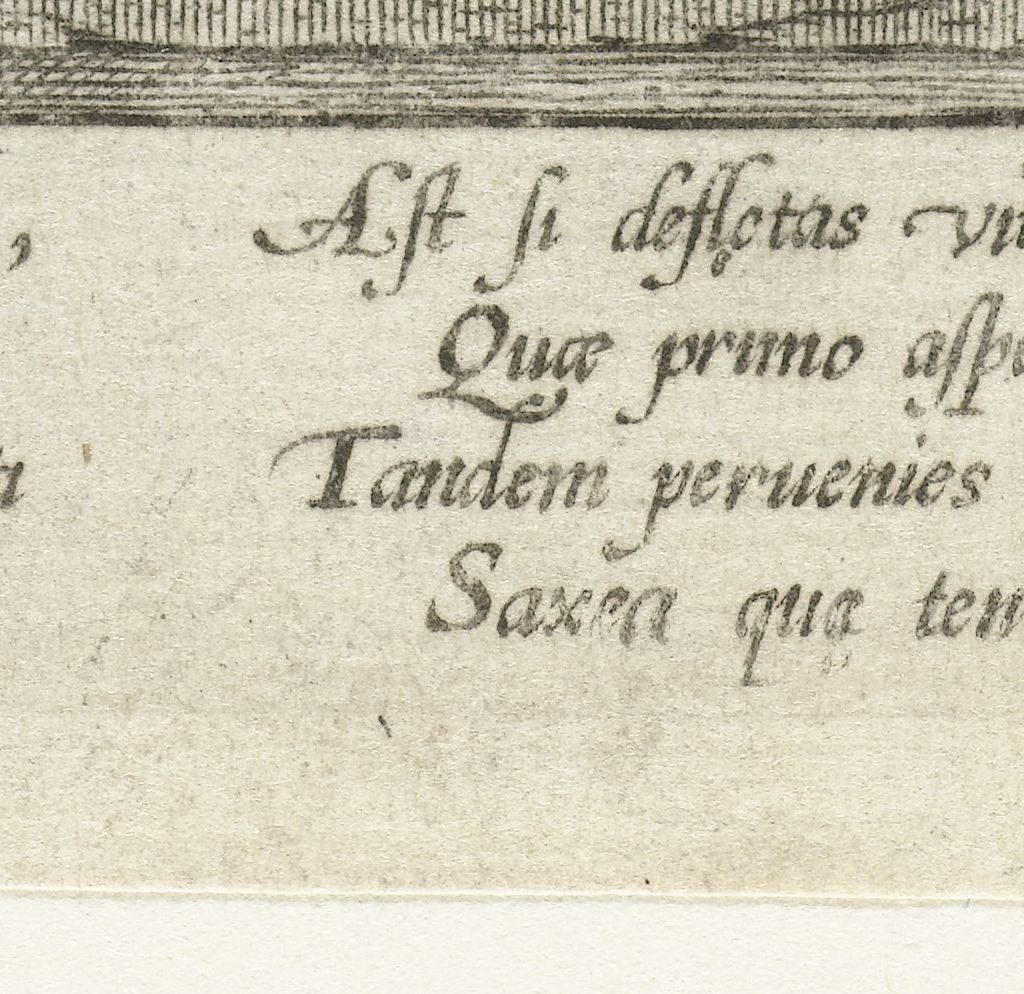 Aſt ſi deflętas vi
Quæ primo aſpe
Tandem peruenies
Saxea quę tem